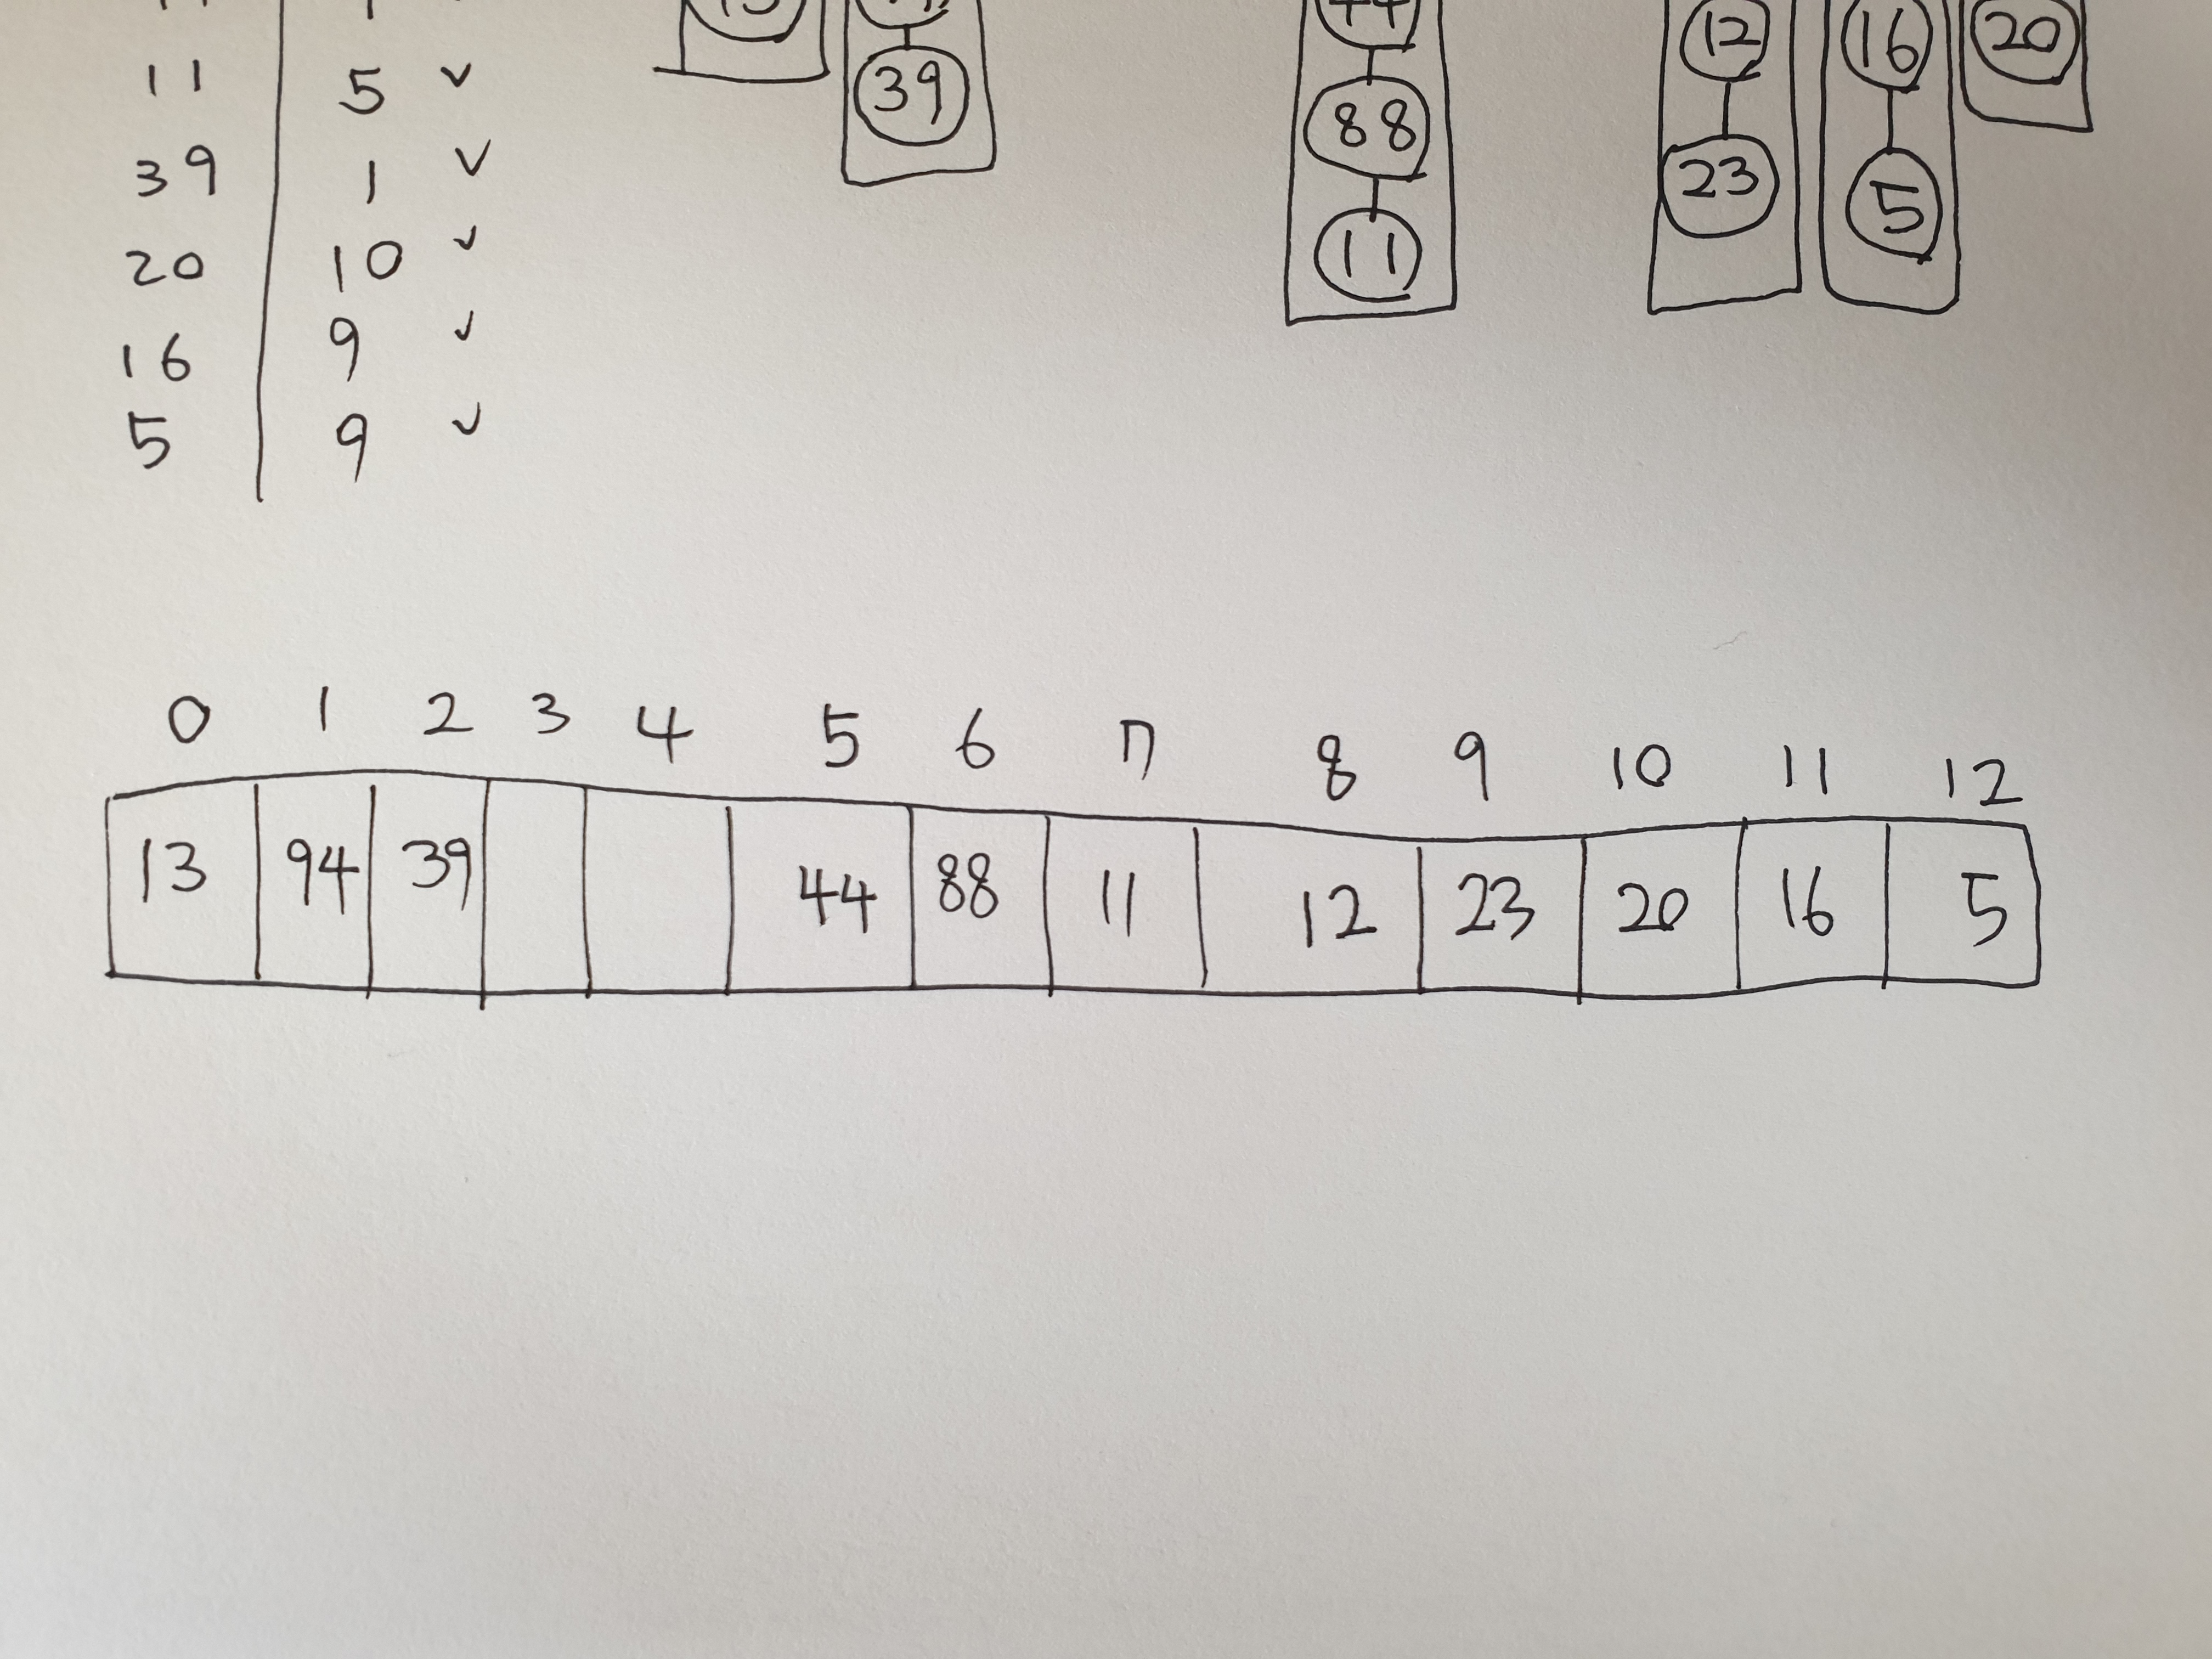 11 5 ✓
39 1 ✓
20 10 ✓
16 9 ✓
5 9 ✓
39
88
11
12
23
16
5
20
0 1 2 3 4 5 6 7 8 9 10 11 12
13 94 39 44 88 11 12 23 20 16 5